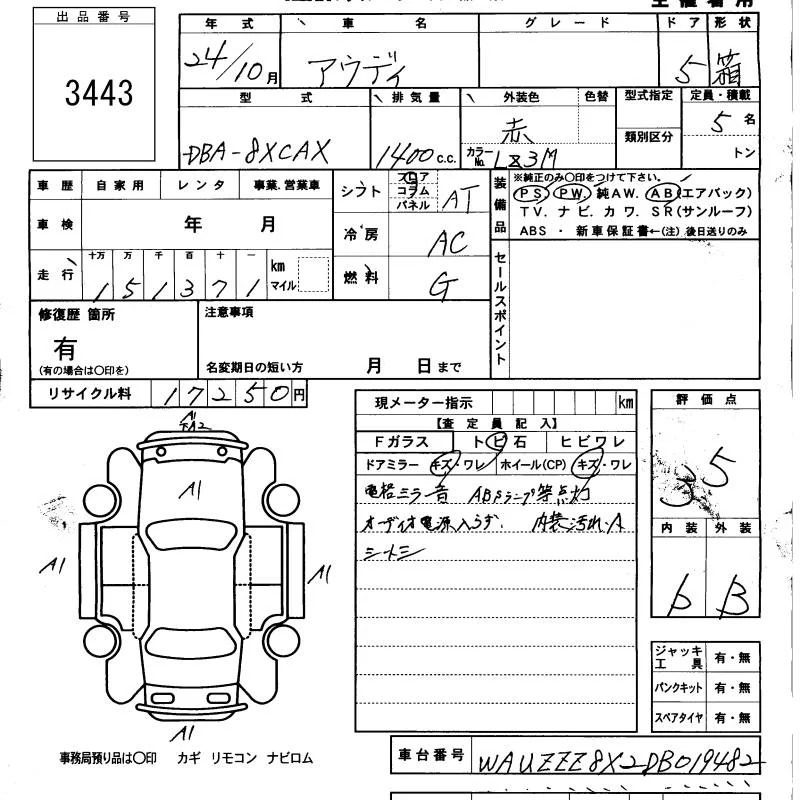 出品番号
3443
年式 車名 グレード ドア 形状
24/10月 アウディ 5 箱
型式 排気量 外装色 色替 型式指定 定員・積載
類別区分
DBA-8XCAX 1400c.c. 赤 5名
カラーNo. LZ3M トン
車歴 自家用 レンタ 事業.営業車
シフト フロア コラム パネル AT
装備品
※純正のみ○印をつけて下さい。
PS. PW. 純AW. AB(エアバック)
TV. ナビ. カワ. SR(サンルーフ)
ABS ・ 新車保証書←(注) 後日送りのみ
車検 年 月
冷房 AC
走行 十万 万 千 百 十 一 km マイル
151371
燃料 G
セールスポイント
修復歴 箇所
有
(有の場合は○印を)
注意事項
名変期日の短い方 月 日まで
リサイクル料 17250円
現メーター指示 km
【査定員記入】
Fガラス トビ石 ヒビワレ
ドアミラー キズ・ワレ ホイール(CP) キズ・ワレ
電格ミラー音 ABSランプ等点灯
オーディオ電源入らず. 内装汚れ・A
シートシミ
評価点
3.5
内装 外装
D B
A1
A1
A1
A1
A1
ジャッキ工具 有・無
パンクキット 有・無
スペアタイヤ 有・無
事務局預り品は○印 カギ リモコン ナビロム
車台番号 WAUZZZ8X2DB019482